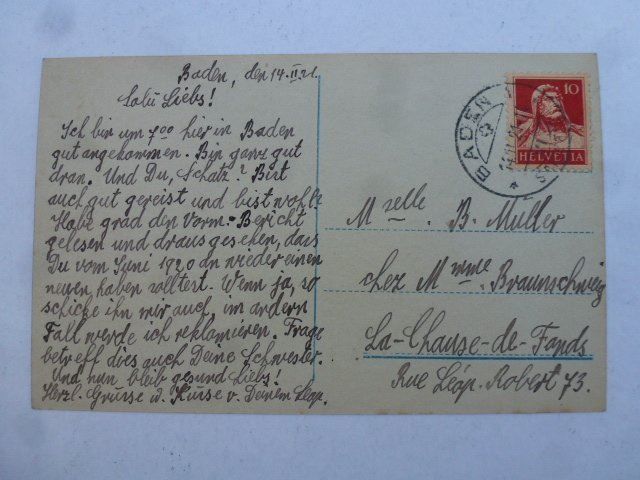 Baden, den 14.II.21.
Salü Liebs!
Ich bin um 7.00 hier in Baden
gut angekommen. Bin ganz gut
dran. Und Du, Schatz? Bist
auch gut gereist und bist wohl?
Habe grad den Vorm.-Bericht
gelesen und draus gesehen, dass
Du vom Juni 1920 an wieder einen
neuen haben solltest. Wenn ja, so
schicke ihn mir auch, im andern
Fall werde ich reklamieren. Frage
betreff dies auch Deine Schwester.
Und nun bleib gesund Liebs!
Herzl. Grüsse u. Küsse v. Deinem Léop.
10
HELVETIA
BADEN
Mzelle. B. Müller
chez Mmme Braunschweig
La-Chause-de-Fonds
Rue Léop. Robert 73.